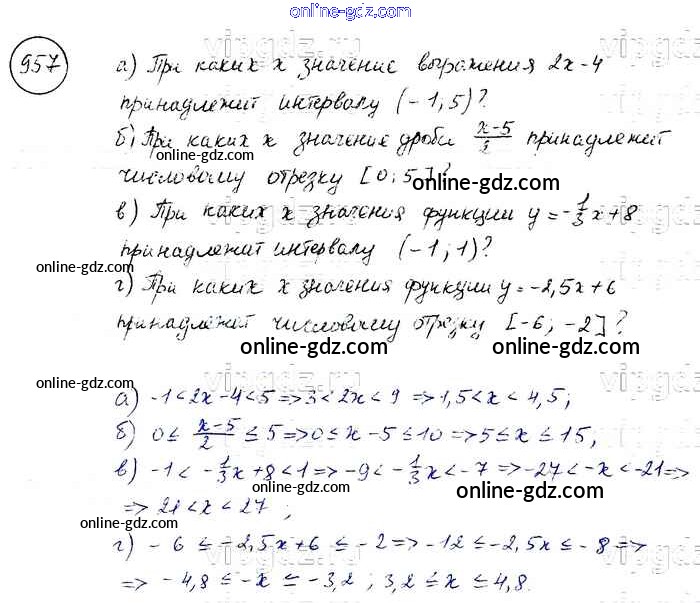 online-gdz.com
957
а) При каких x значение выражения 2x-4
принадлежит интервалу (-1, 5)?
б) При каких x значение дроби x-5/2 принадлежит
online-gdz.com
числовому отрезку [0; 5]?
online-gdz.com
в) При каких x значения функции y = -1/3x+8
online-gdz.com
принадлежит интервалу (-1; 1)?
online-gdz.com
г) При каких x значения функции y = -2,5x+6
принадлежит числовому отрезку [-6; -2]?
online-gdz.com
online-gdz.com
online-gdz.com
а) -1<2x-4<5=>3<2x<9=>1,5<x<4,5;
online-gdz.com
б) 0≤ x-5/2 ≤5=>0≤x-5≤10=>5≤x≤15;
online-gdz.com
в) -1< -1/3x+8<1=>-9<-1/3x<-7 =>-27<-x<-21=>
online-gdz.com
=> 21<x<27;
online-gdz.com
г) -6 ≤ -2,5x+6 ≤ -2=>-12≤-2,5x≤-8=>
online-gdz.com
=> -4,8 ≤ -x ≤ -3,2; 3,2 ≤ x ≤ 4,8.
online-gdz.com